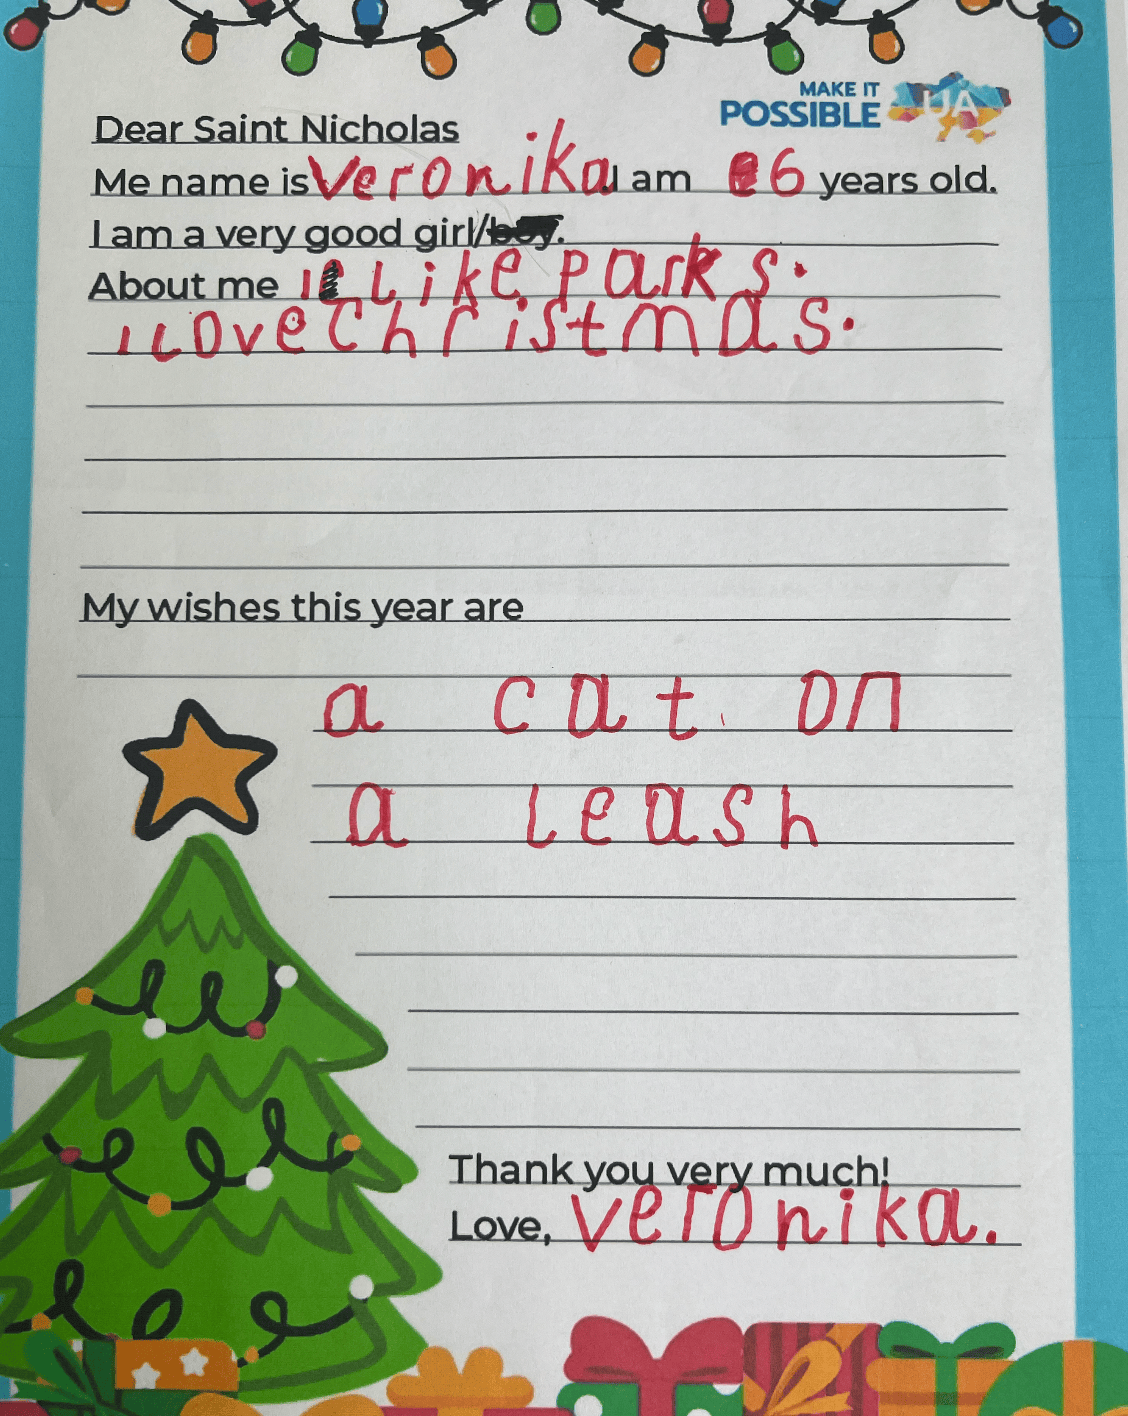 MAKE IT
POSSIBLE UA
Dear Saint Nicholas
Me name is Veronika I am 6 years old.
I am a very good girl/boy.
About me I Like parks.
I Love Christmas.
My wishes this year are
a cat on
a leash
Thank you very much!
Love, Veronika.